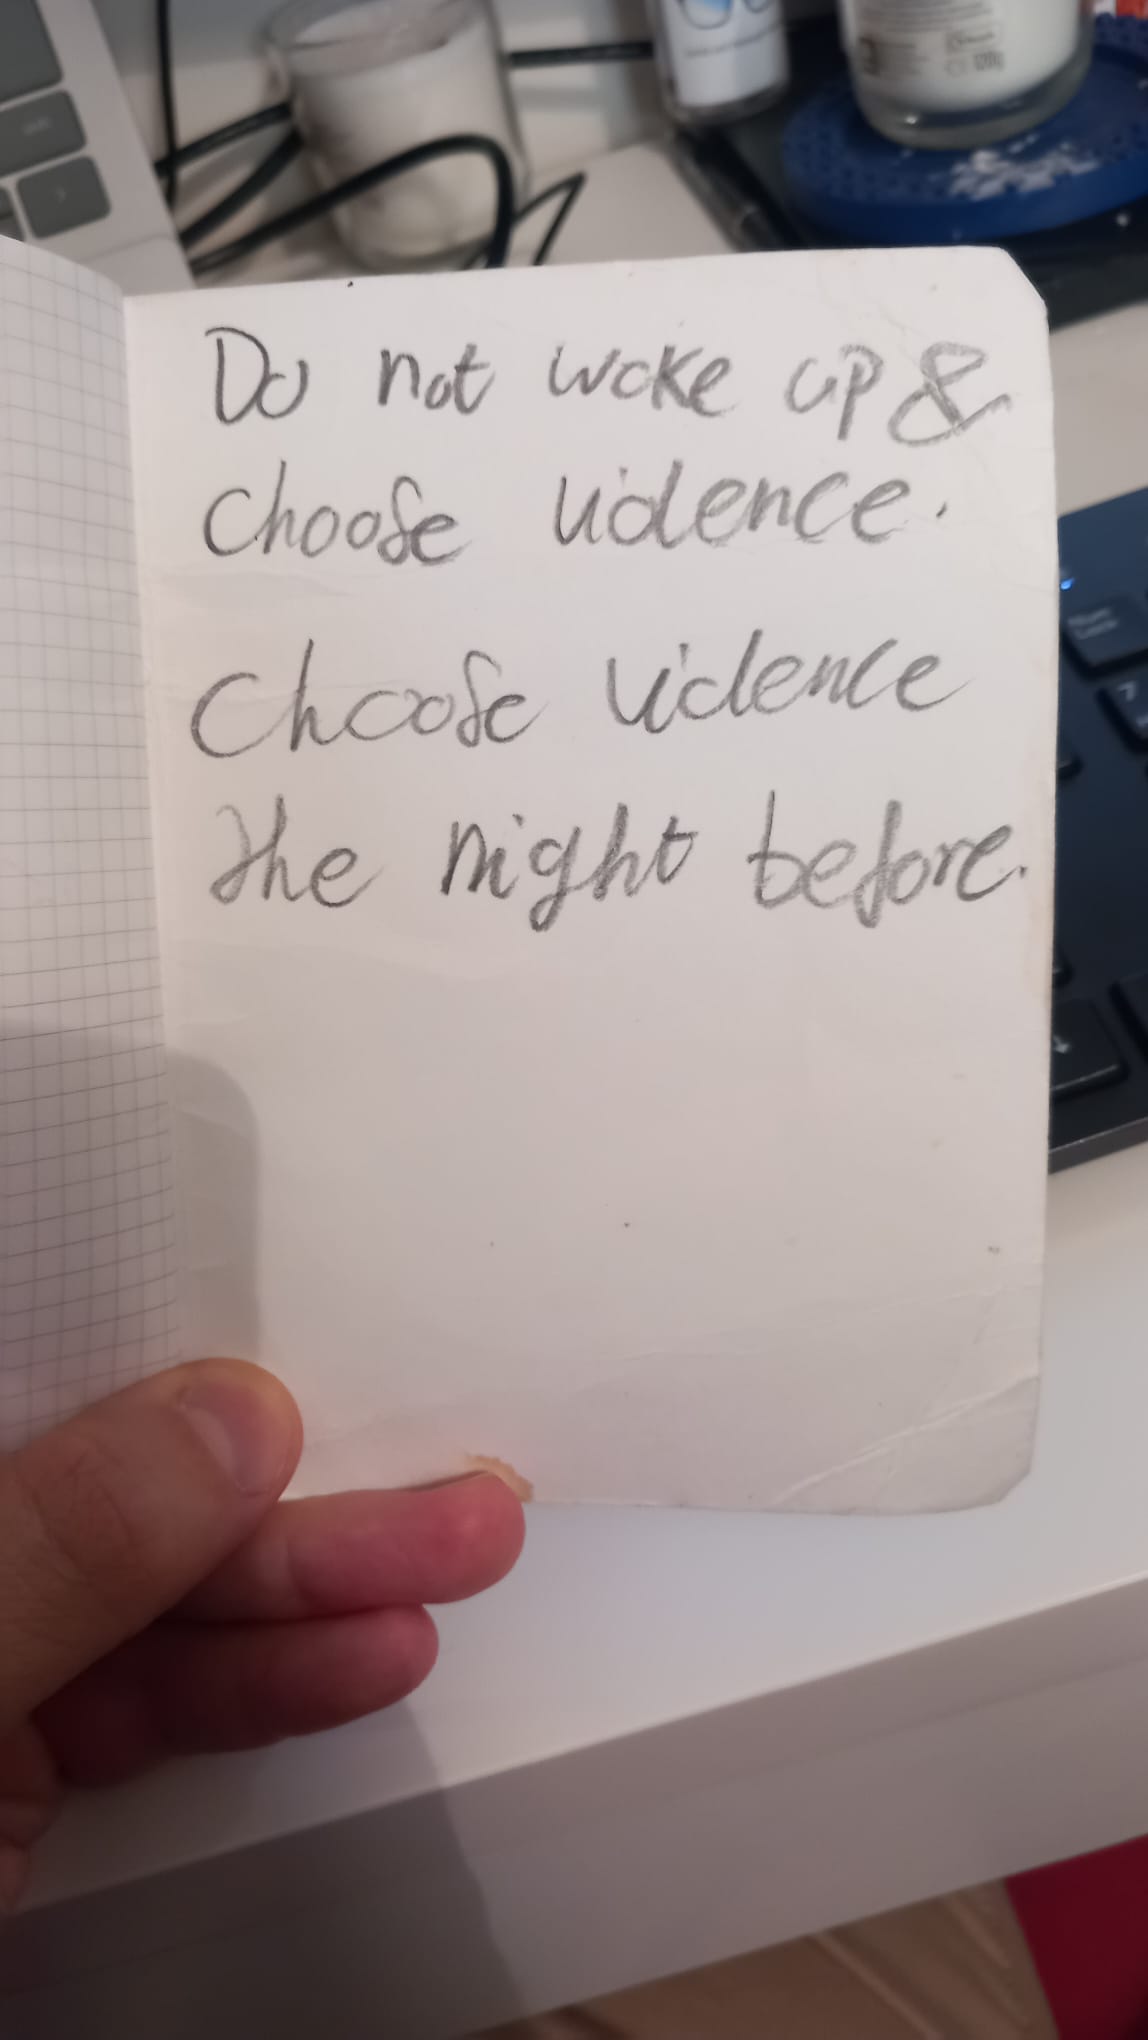 Do not wake up &
choose violence.
Choose violence
the night before.
120g
Num
Lock
7